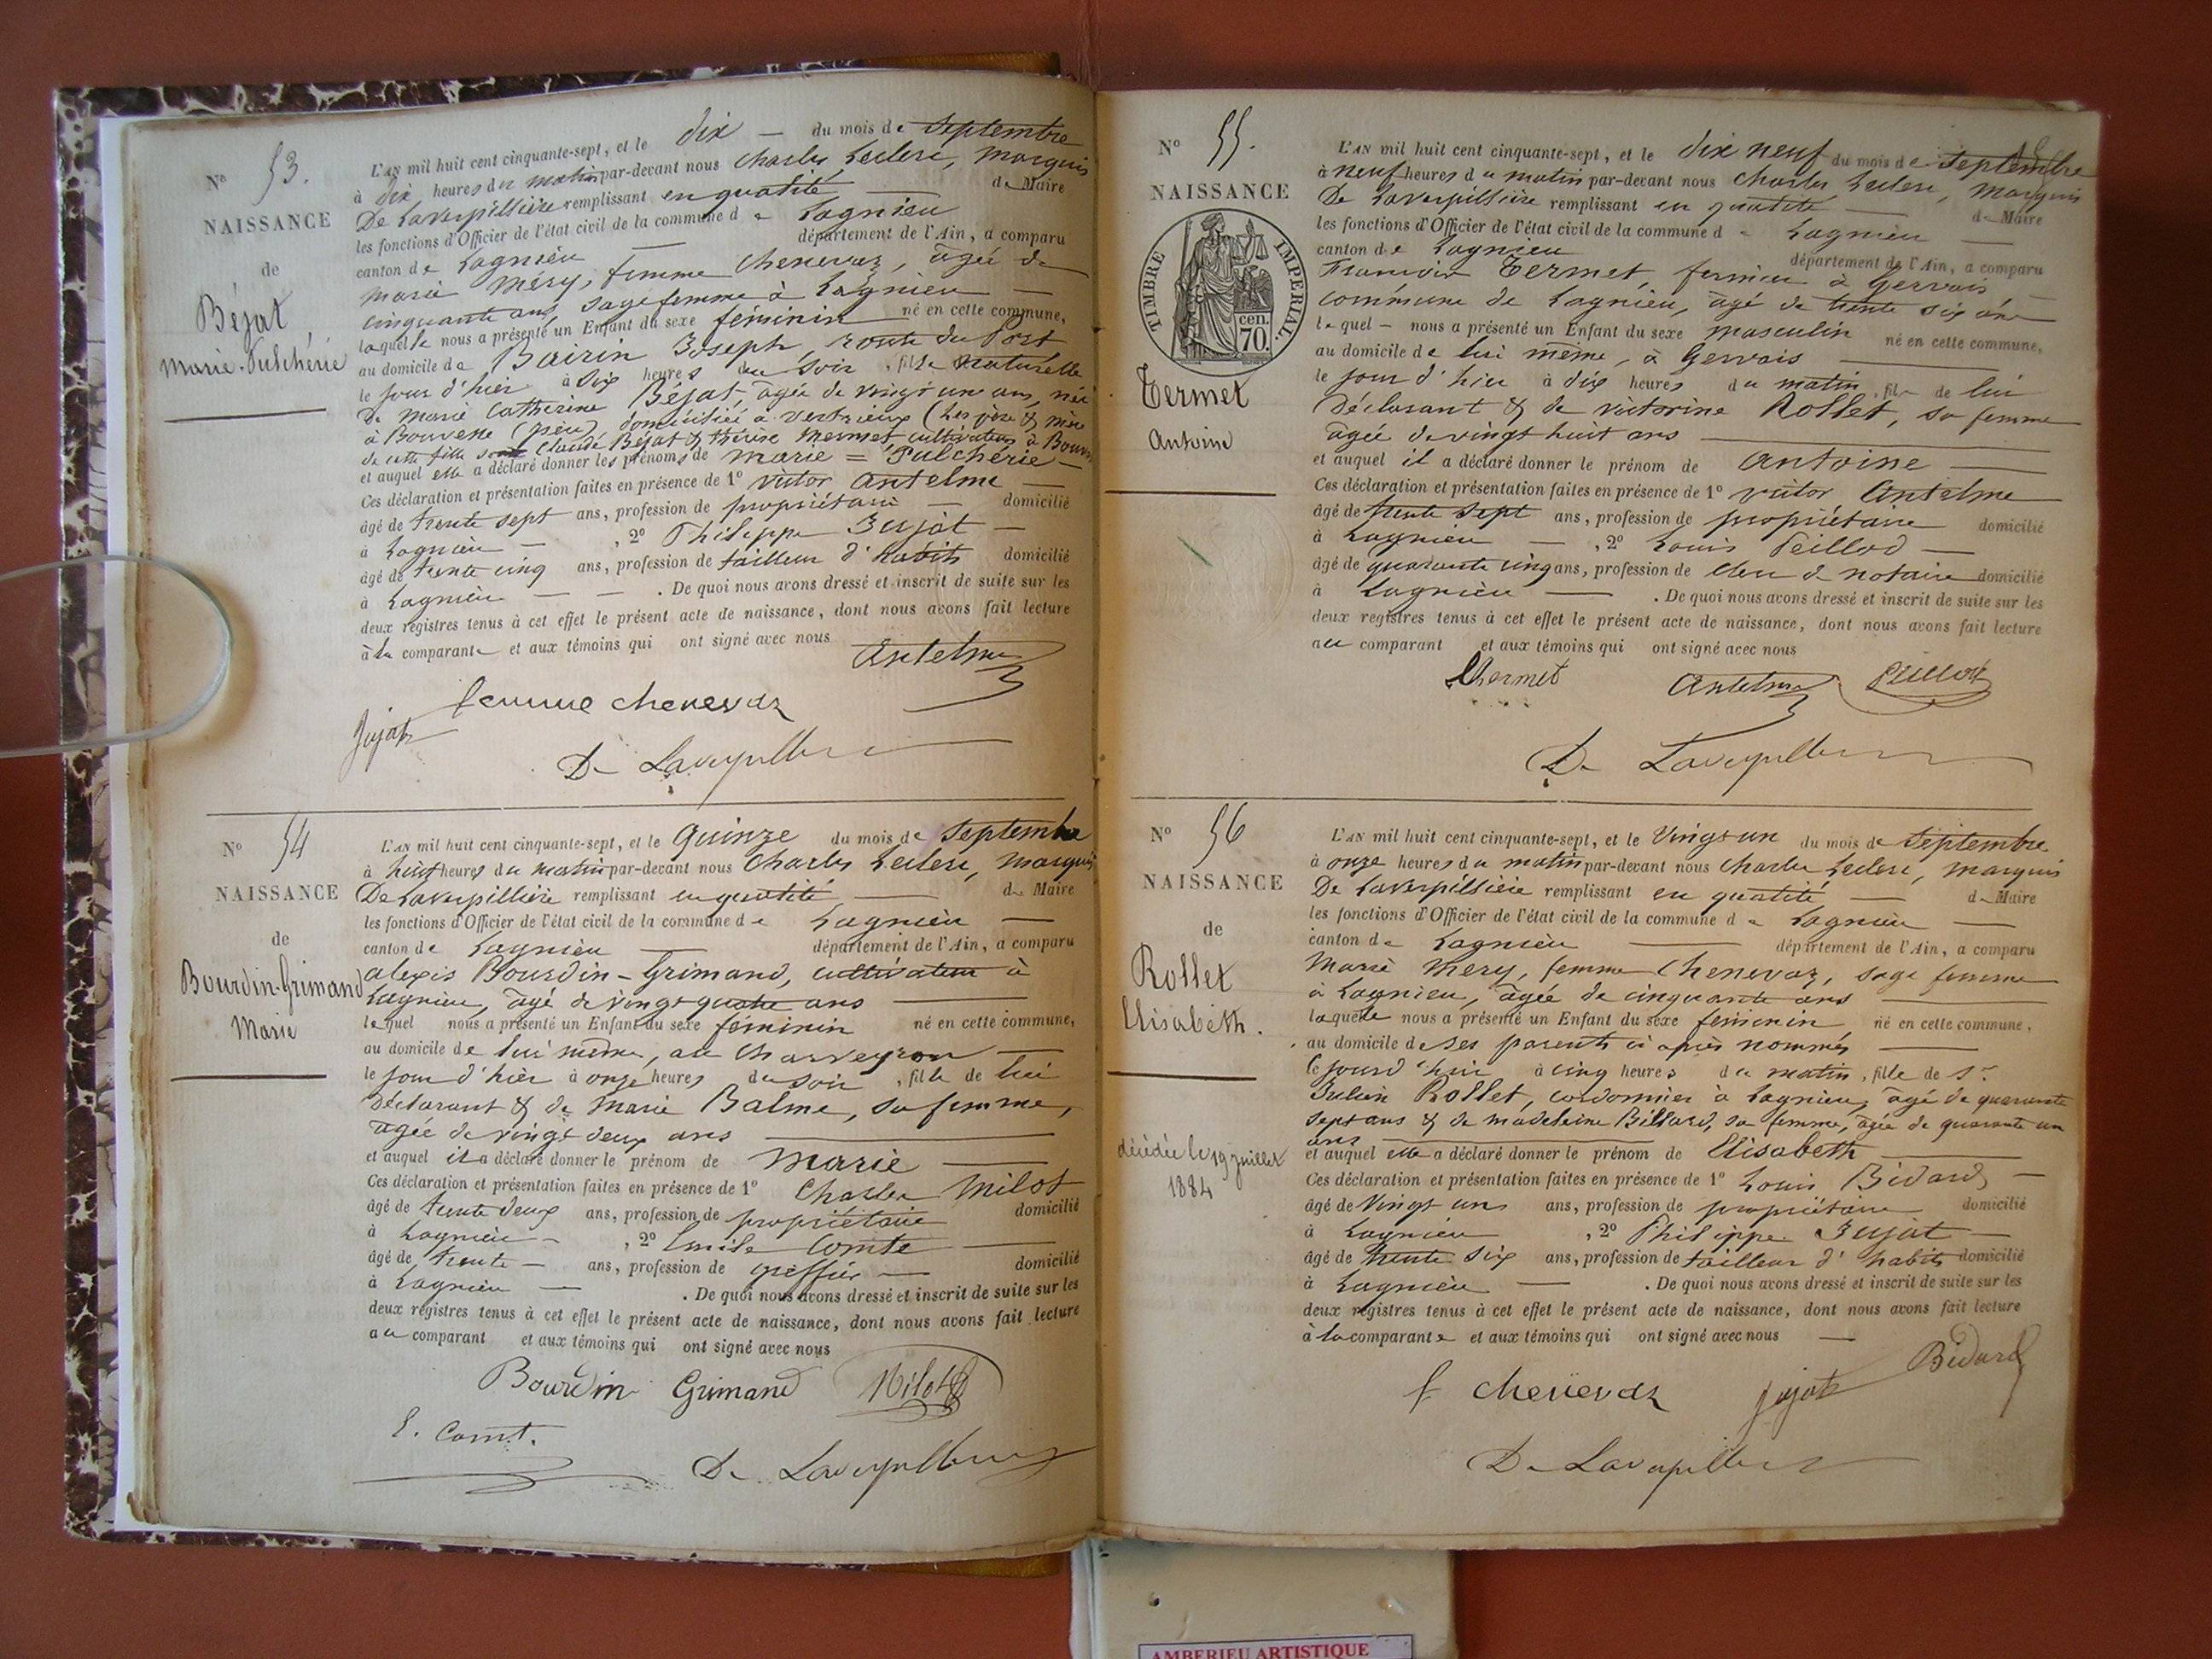 N° 53.
NAISSANCE
de
Béjat,
Marie-Pulchérie
L'AN mil huit cent cinquante-sept, et le dix — du mois de septembre
à dix heures du matin par-devant nous Charles Leclerc, Marquis
De Laverpillière remplissant en qualité — de Maire
les fonctions d'Officier de l'état civil de la commune de Lagnieu
canton de Lagnieu — département de l'Ain, a comparu
Marie Méry, femme Chenevaz, âgée de
cinquante ans, sage femme à Lagnieu —
laquelle nous a présenté un Enfant du sexe féminin né en cette commune,
au domicile de Bairin Joseph, route du Port
le jour d'hier à six heures du soir, fille naturelle
de Marie Catherine Béjat, âgée de vingt un ans, née
à Bouvesse (Isère), domiciliée à Vertrieux (les père & mère
de cette fille sont Claude Béjat & Thérèse Mermet, cultivateurs à
et auquel elle a déclaré donner les prénoms de Marie = Pulchérie —
Ces déclaration et présentation faites en présence de 1° Victor Antelme —
âgé de trente sept ans, profession de propriétaire — domicilié
à Lagnieu — , 2° Philippe Jujat —
âgé de trente cinq ans, profession de tailleur d'habits domicilié
à Lagnieu — — . De quoi nous avons dressé et inscrit de suite sur les
deux registres tenus à cet effet le présent acte de naissance, dont nous avons fait lecture
à la comparante et aux témoins qui ont signé avec nous
Antelme
femme chenevaz
Jujat
De Laverpilliere
N° 54
NAISSANCE
de
Bourdin-Grimand
Marie
L'AN mil huit cent cinquante-sept, et le Quinze du mois de septembre
à huit heures du matin par-devant nous Charles Leclerc, Marquis
De Laverpillière remplissant en qualité — de Maire
les fonctions d'Officier de l'état civil de la commune de Lagnieu —
canton de Lagnieu — département de l'Ain, a comparu
Alexis Bourdin-Grimand, cultivateur à
Lagnieu, âgé de vingt quatre ans —
lequel nous a présenté un Enfant du sexe féminin né en cette commune,
au domicile de lui même, au Charveyron —
le jour d'hier à onze heures du soir, fille de lui
déclarant & de Marie Balme, sa femme,
âgée de vingt deux ans —
et auquel il a déclaré donner le prénom de Marie —
Ces déclaration et présentation faites en présence de 1° Charles Milot
âgé de trente deux ans, profession de propriétaire domicilié
à Lagnieu — , 2° Emile Comte —
âgé de trente — ans, profession de greffier — domicilié
à Lagnieu — . De quoi nous avons dressé et inscrit de suite sur les
deux registres tenus à cet effet le présent acte de naissance, dont nous avons fait lecture
au comparant et aux témoins qui ont signé avec nous
Bourdin Grimand Milot
E. Comt.
De Laverpilliere
N° 55.
NAISSANCE
TIMBRE IMPERIAL.
cen.
70.
Termet
Antoine
L'AN mil huit cent cinquante-sept, et le dix neuf du mois de septembre
à neuf heures du matin par-devant nous Charles Leclerc, Marquis
De Laverpillière remplissant en qualité — de Maire
les fonctions d'Officier de l'état civil de la commune de Lagnieu —
canton de Lagnieu département de l'Ain, a comparu
François Termet, fermier à Gervais —
commune de Lagnieu, âgé de trente six ans
lequel — nous a présenté un Enfant du sexe masculin né en cette commune,
au domicile de lui même, à Gervais —
le jour d'hier à dix heures du matin, fils de lui
déclarant & de Victorine Rollet, sa femme
âgée de vingt huit ans —
et auquel il a déclaré donner le prénom de Antoine —
Ces déclaration et présentation faites en présence de 1° Victor Antelme
âgé de trente sept ans, profession de propriétaire domicilié
à Lagnieu — , 2° Louis Peillod —
âgé de quarante cinq ans, profession de clerc de notaire domicilié
à Lagnieu — . De quoi nous avons dressé et inscrit de suite sur les
deux registres tenus à cet effet le présent acte de naissance, dont nous avons fait lecture
au comparant et aux témoins qui ont signé avec nous
Thermet Antelme Peillod
De Laverpilliere
N° 56
NAISSANCE
de
Rollet
Elisabeth.
décédée le 19 juillet
1884
L'AN mil huit cent cinquante-sept, et le Vingt un du mois de septembre
à onze heures du matin par-devant nous Charles Leclerc, Marquis
De Laverpillière remplissant en qualité — de Maire
les fonctions d'Officier de l'état civil de la commune de Lagnieu —
canton de Lagnieu — département de l'Ain, a comparu
Marie Méry, femme Chenevaz, sage femme
à Lagnieu, âgée de cinquante ans —
laquelle nous a présenté un Enfant du sexe féminin né en cette commune,
au domicile de ses parents ci après nommés —
le jourd'hui à cinq heures du matin, fille de Sr
Julien Rollet, cordonnier à Lagnieu, âgé de quarante
sept ans & de Madeleine Billard, sa femme, âgée de quarante un
ans —
et auquel elle a déclaré donner le prénom de Elisabeth —
Ces déclaration et présentation faites en présence de 1° Louis Bidard, —
âgé de Vingt un ans, profession de propriétaire domicilié
à Lagnieu , 2° Philippe Jujat —
âgé de trente six ans, profession de tailleur d'habits domicilié
à Lagnieu — . De quoi nous avons dressé et inscrit de suite sur les
deux registres tenus à cet effet le présent acte de naissance, dont nous avons fait lecture
à la comparante et aux témoins qui ont signé avec nous —
f chenevaz Jujat Bidard
De Laverpilliere
AMBERIEU ARTISTIQUE